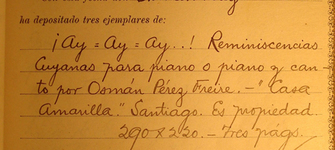 ha depositado tres ejemplares de:
¡Ay = Ay = Ay..! Reminiscencias
Cuyanas para piano o piano y can-
to por Osmán Pérez Freire. - "Casa
Amarilla." Santiago. Es propiedad
290 x 220. - Tres págs.